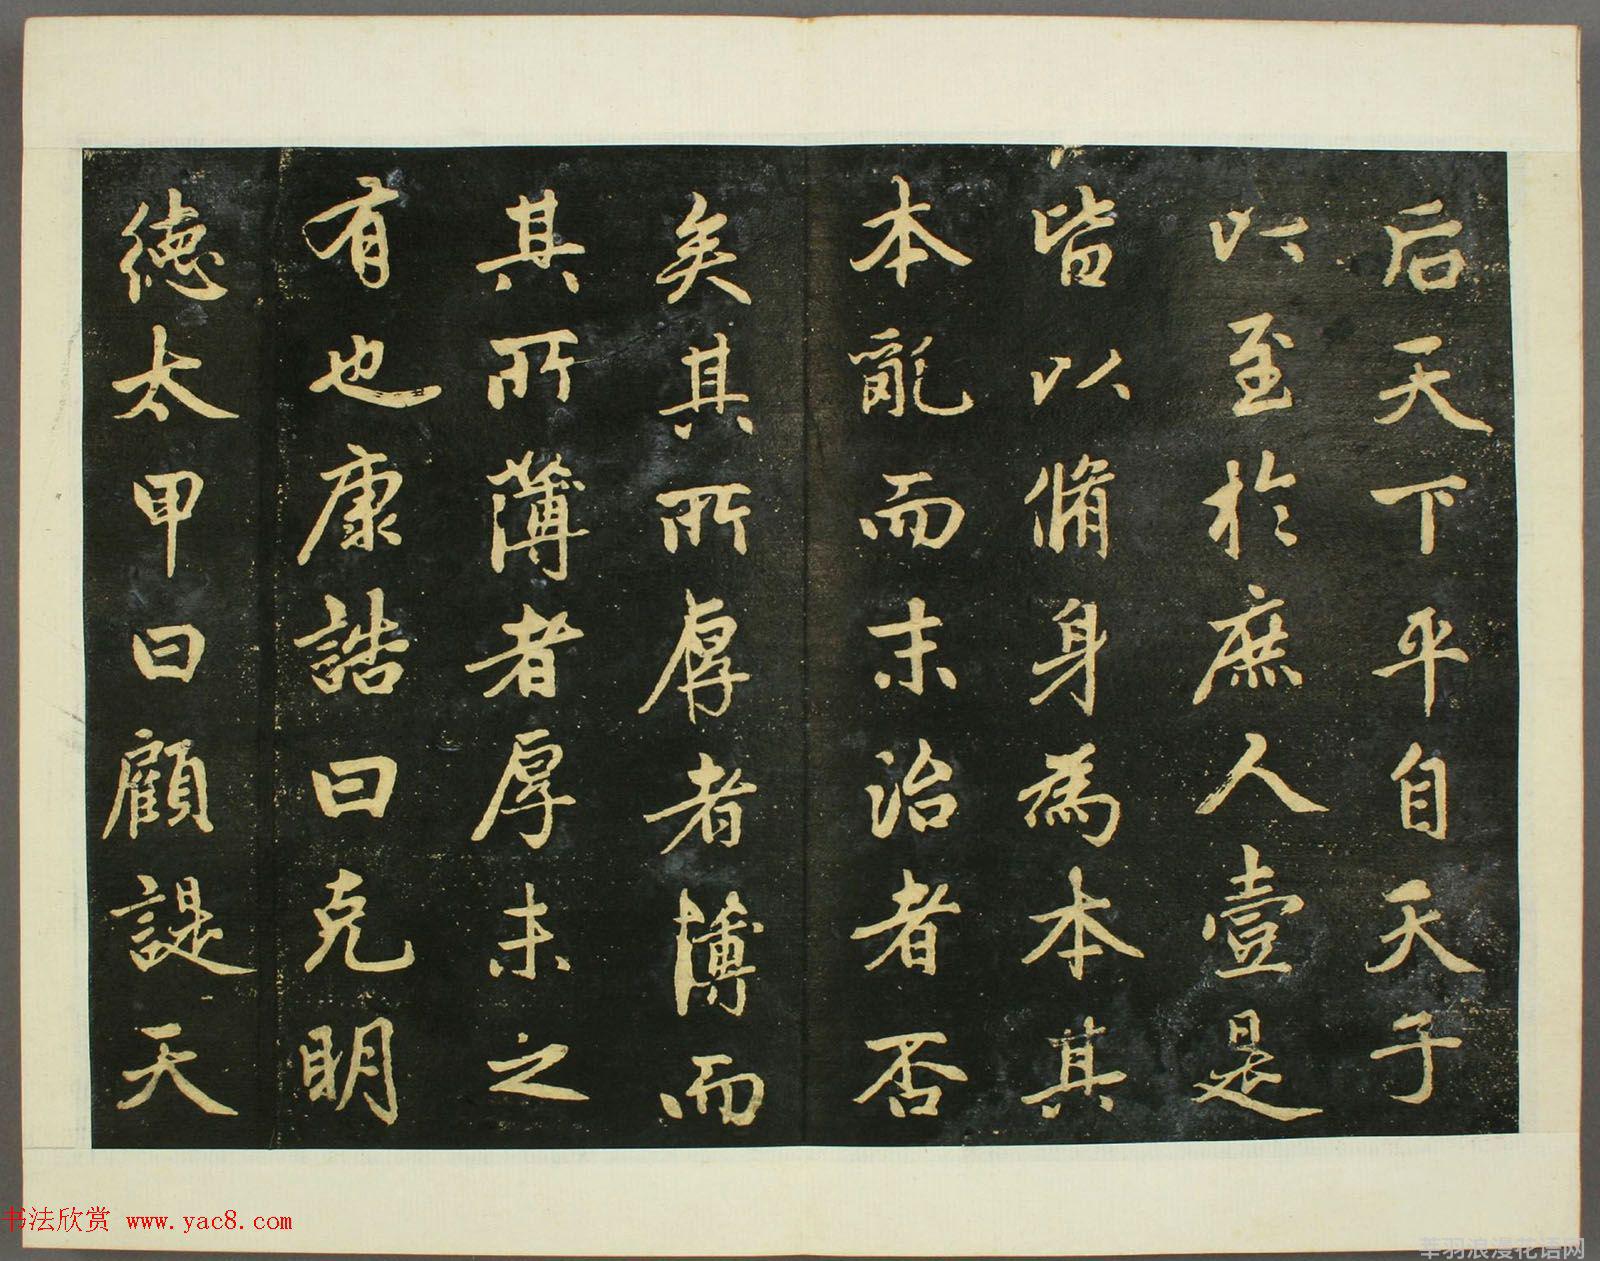 后天下平自天子
以至於庶人壹是
皆以脩身為本其
本亂而末治者否
矣其所厚者薄而
其所薄者厚未之
有也康誥曰克明
德太甲曰顧諟天
书法欣赏 www.yac8.com
莘羽浪漫花语网